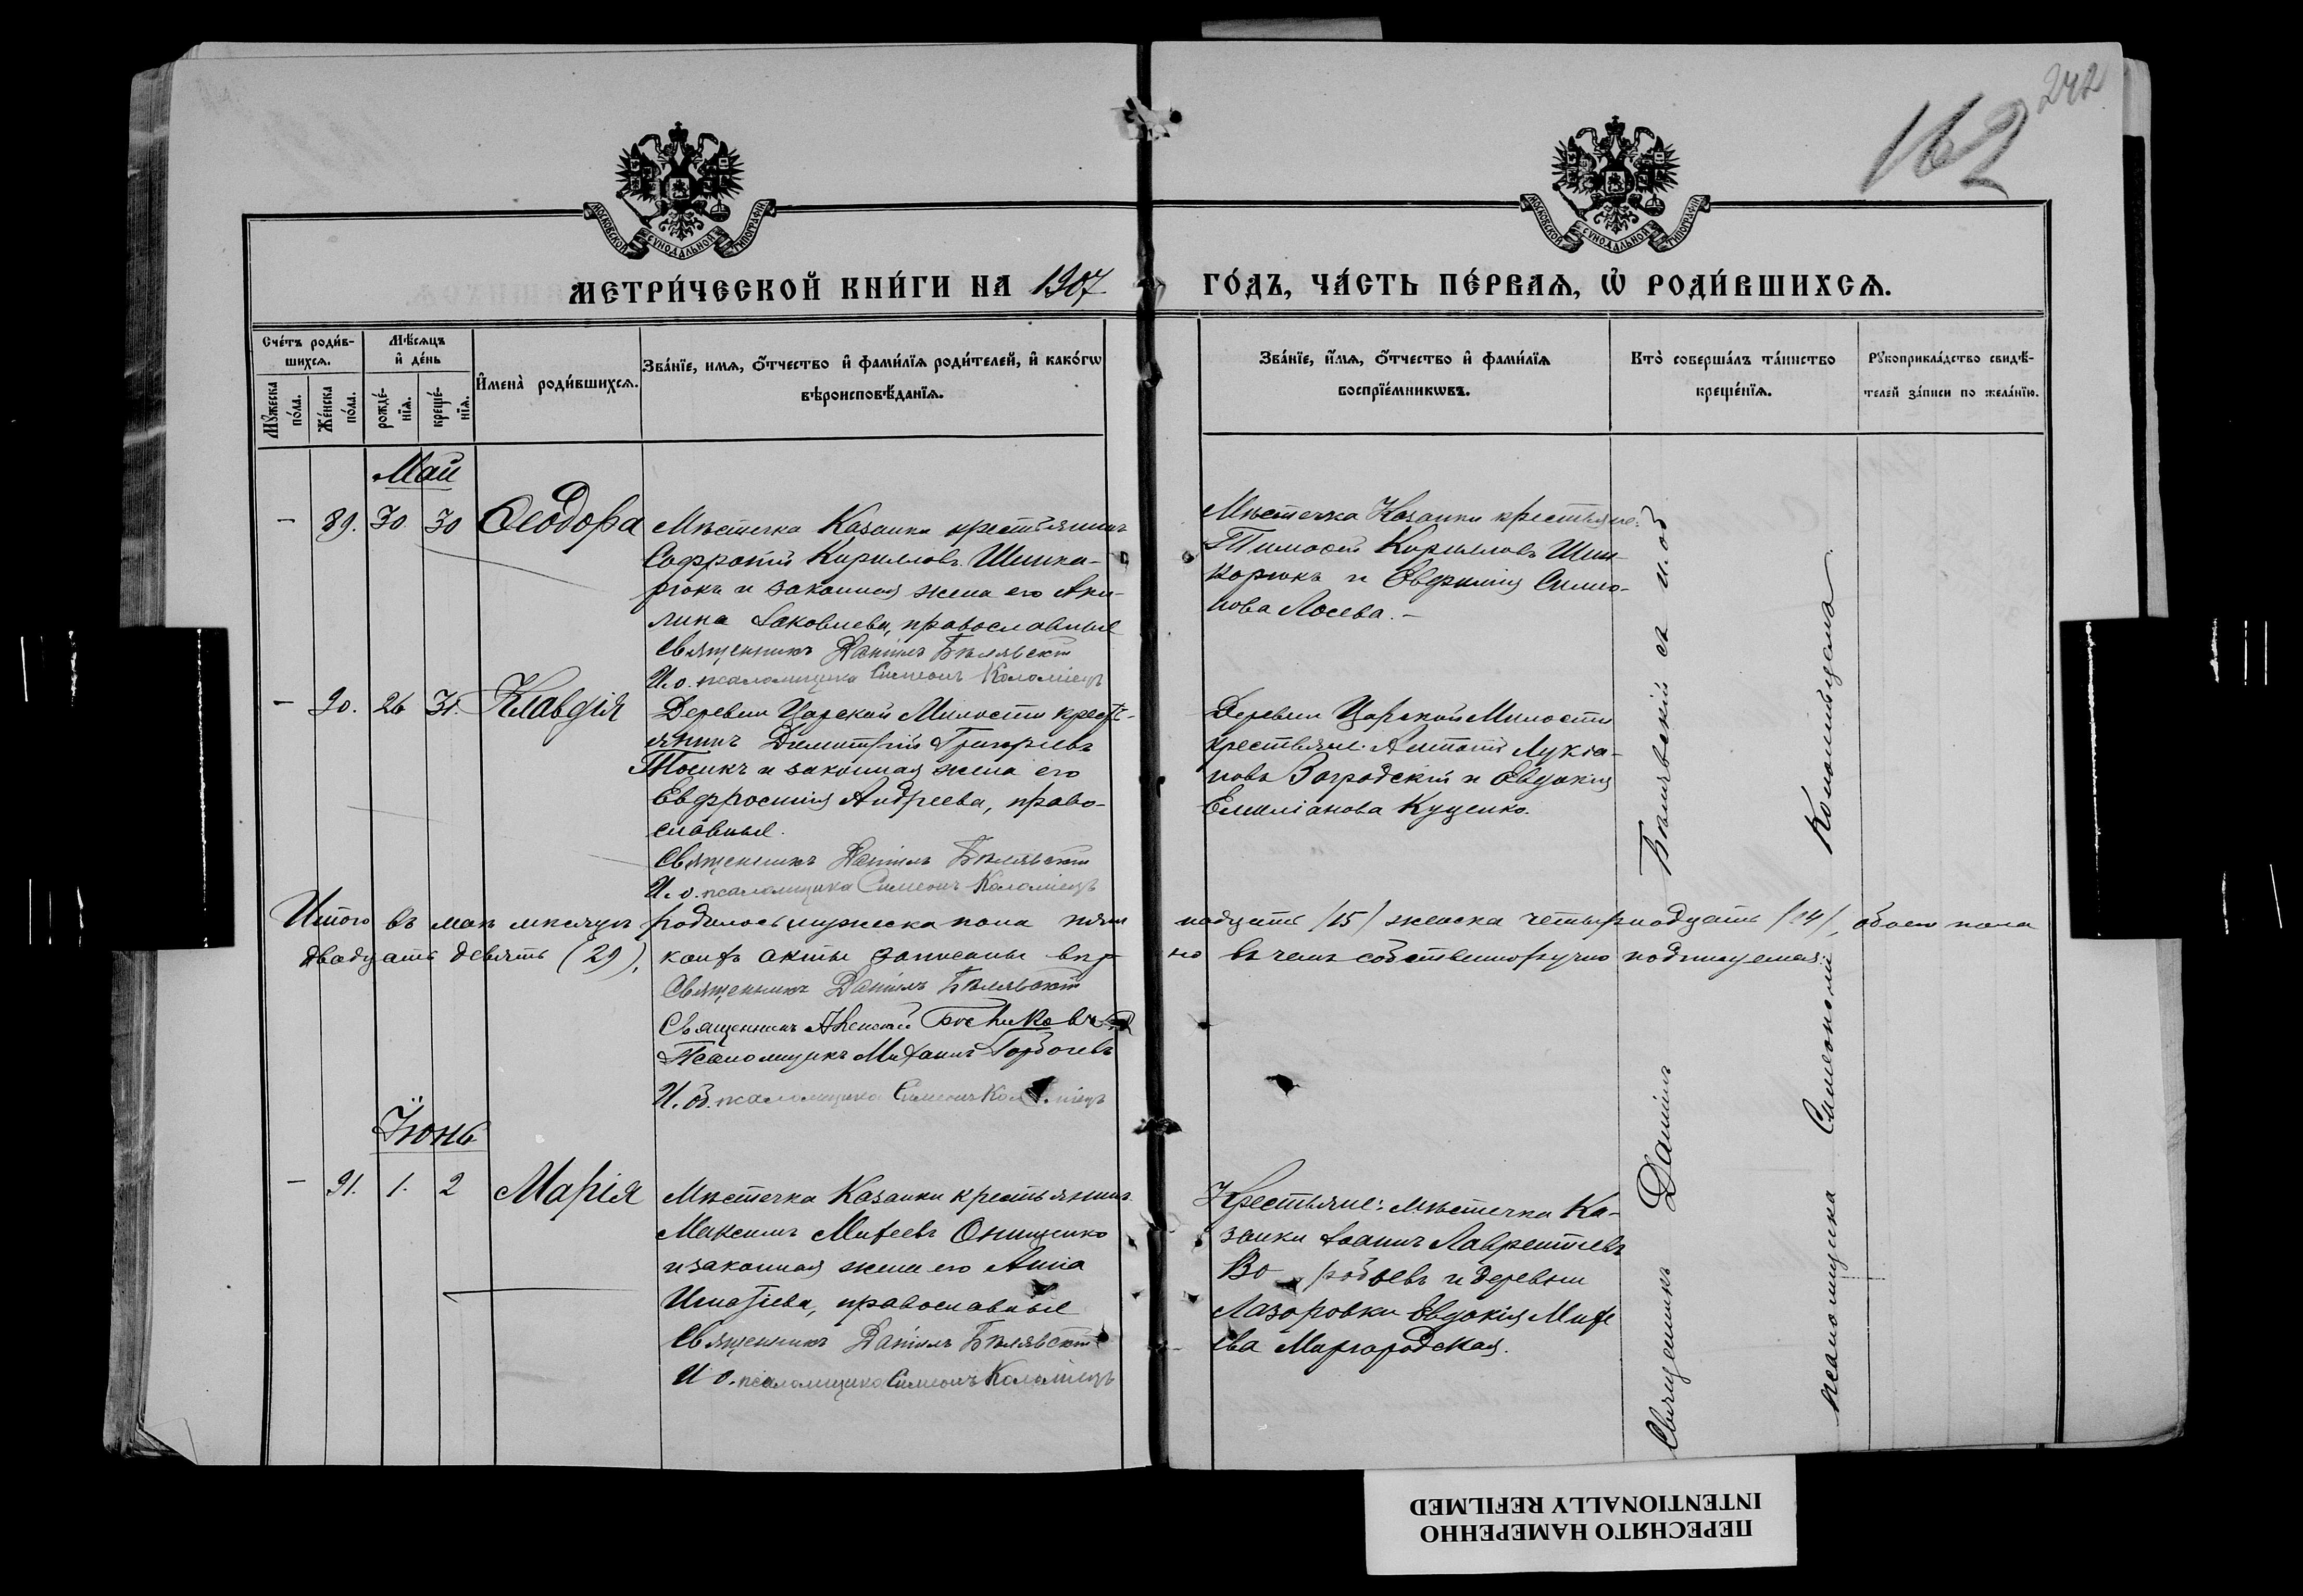 242
162
МОСКОВСКОЙ СѴНОДАЛЬНОЙ ТИПОГРАФІИ
МОСКОВСКОЙ СѴНОДАЛЬНОЙ ТИПОГРАФІИ
МЕТРИ́ЧЕСКОЙ КНИ́ГИ НА 1907 ГО́ДЪ, ЧА́СТЬ ПЕ́РВАѦ, Ѡ҆ РОДИ́ВШИХСѦ.
Сче́тъ роди́в-
шихсѧ.
Мꙋ́жеска
по́ла.
Же́нска
по́ла.
Мѣ́сѧцъ
и҆ де́нь
рожде́-
нїѧ.
креще́-
нїѧ.
И҆мена̀ роди́вшихсѧ.
Зва́нїе, имѧ, ѻ҆́тчество и҆ фами́лїѧ роди́телей, и҆ како́гѡ
вѣроисповѣ́данїѧ.
Зва́нїе, и҆́мѧ, ѻ҆́тчество и҆ фами́лїѧ
воспрїе́мникѡвъ.
Кто̀ соверша́лъ та́инство
креще́нїѧ.
Рꙋкоприкла́дство свидѣ́-
телей за́писи по жела́нїю.
Май
- 89. 30 30 Ѳеодора
Мѣстечка Казанки крестьянинъ
Софроній Кирилловъ Шинка-
рюкъ и законная жена его Аки-
лина Іаковлева, православные
Священникъ Даніилъ Бѣлявскій
И. о. псаломщика Симеонъ Коломіецъ
Мѣстечка Казанки крестьяне:
Тимоѳей Кирилловъ Шин-
карюкъ и Евфимія Симео-
нова Лосева. -
- 90. 26 31. Клавдія
Деревни Царской Милости кресть-
янинъ Димитрій Григорьевъ
Тосикъ и законная жена его
Евфросинія Андреева, право-
славные.
Священникъ Даніилъ Бѣлявскій
И. о. псаломщика Симеонъ Коломіецъ
Деревни Царской Милости
крестьяне: Антоній Лукіа-
новъ Заградскій и Евдокія
Емиліанова Куценко.
Итого въ маѣ мѣсяцѣ родилось мужеска пола пят надцать (15) женска четырнадцать (14), обоего пола
двадцать девять (29), коихъ акты записаны вѣр но въ чемъ собственноручно подписуемся:
Священникъ Даніилъ Бѣлявскій
Священникъ Алексій
Псаломщикъ Михаилъ Горбачевъ
И. об. псаломщика Симеонъ Коломіецъ
Іюнь
- 91. 1. 2 Марія
Мѣстечка Казанки крестьянинъ
Максимъ Михеевъ Онищенко
и законная жена его Анна
Игнатіева, православные
Священникъ Даніилъ Бѣлявскій
И о. псаломщика Симеонъ Коломіецъ
Крестьяне: мѣстечка Ка-
занки Іоаннъ Лаврентіевъ
и деревни
Лазаровки Евдокія Михе
ева Миргородская.
Священникъ Даніилъ Бѣлявскій съ и. об
псаломщика Симеономъ Коломійцемъ.
ПЕРЕСНЯТО НАМЕРЕННО
INTENTIONALLY REFILMED